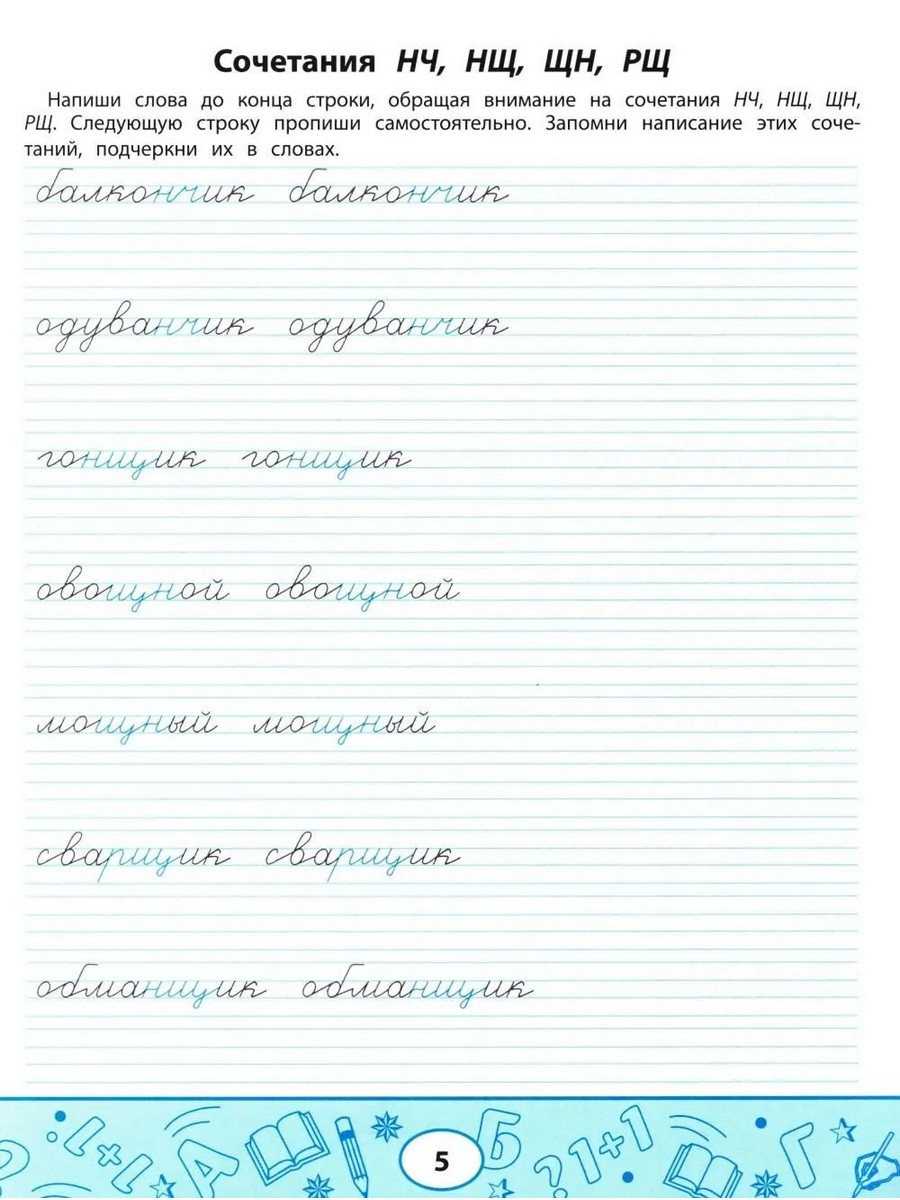 Сочетания НЧ, НЩ, ЩН, РЩ
Напиши слова до конца строки, обращая внимание на сочетания НЧ, НЩ, ЩН,
РЩ. Следующую строку пропиши самостоятельно. Запомни написание этих соче-
таний, подчеркни их в словах.
балкончик балкончик
одуванчик одуванчик
гонщик гонщик
овощной овощной
мощный мощный
сварщик сварщик
обманщик обманщик
1+1 А Б ?1+1 Г
5